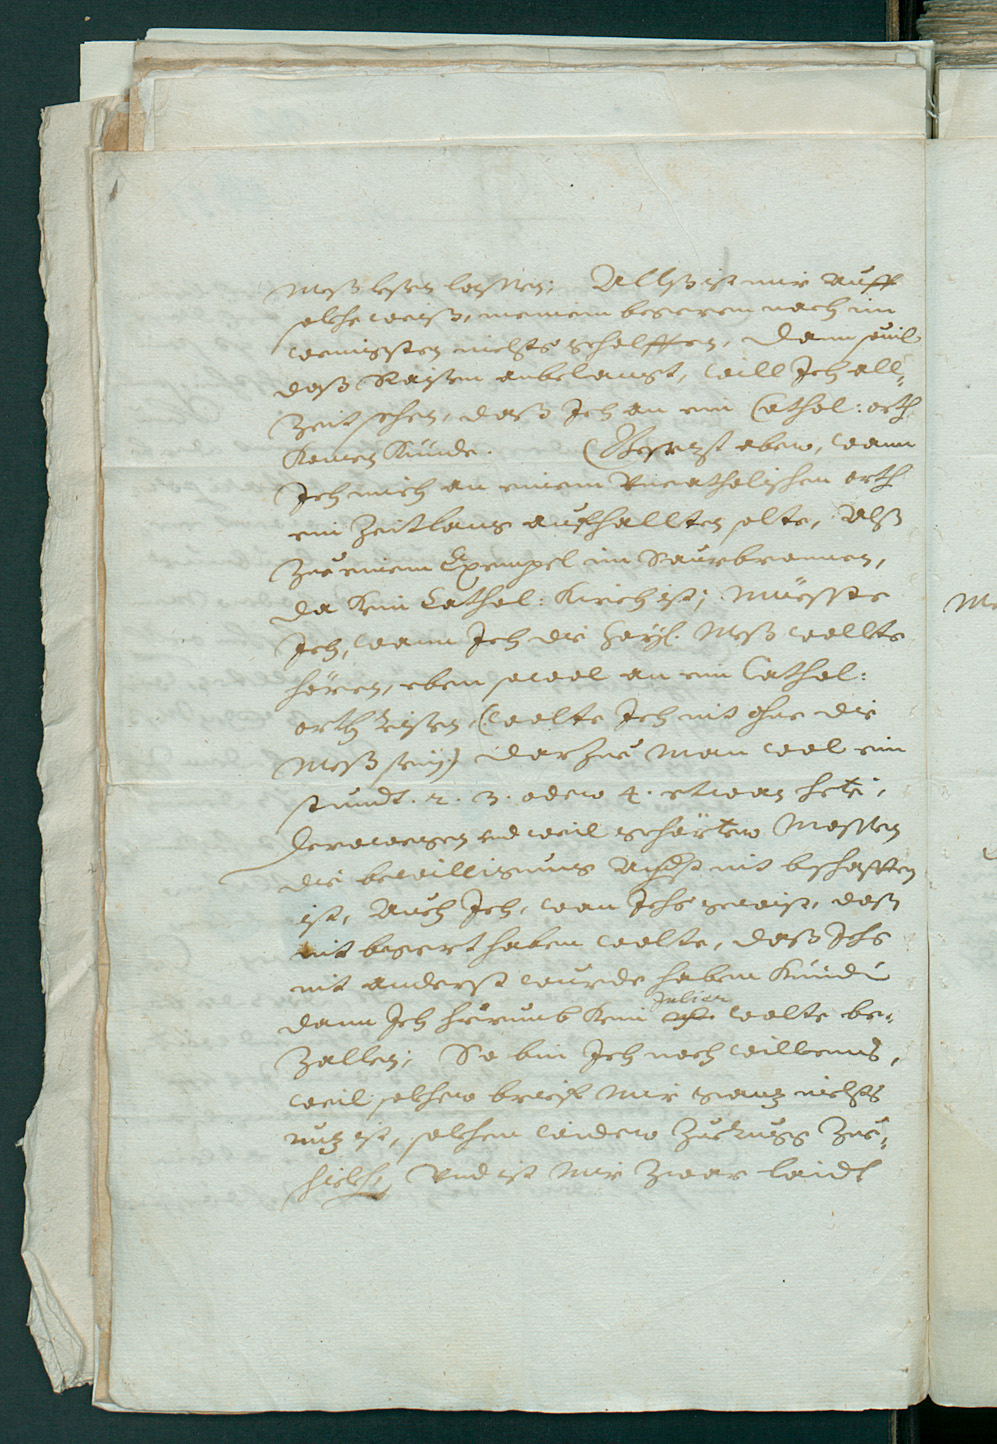 Meß lesen lassen; Allß ist mir auff
solche weiß, meinem begeren nach im
wenigsten nichts geholffen, dann sovil
daß Raisen anbelangt, will Ich all-
Zeit sehen, daß Ich an ein Cathol: orth
Komen Künde. Gesetzt aber, wann
Ich mich an einem Uncatholischen orth
ein Zeitlang aufhallten solte, Alß
Zue einem Exempel im Saurbronnen,
da Kein Cathol: Kirch ist; Müesste
Ich, wann Ich die heyl. Meß wollte
hören, eben sowol an ein Cathol:
orth reisen, (wolte Ich nit ohne die
Meß sein) darzue man wol ein
stundt. 2. 3. oder 4. etwan hete,
Derowegen und weil gehörter Massen
die bewilligung nit beschaffen
ist, Auch Ich, wan Ichs gewist, daß
nit begert haben wolte, daß Ichs
nit anderst wurde haben Künde
dann Ich hierumb Kein Julier wolte be-
Zallen; So bin Ich noch willens,
weil solcher brieff mir gantz nichts
nutz ist, solchen wider Zuerugg Zue-
Und ist Mir Zwar laidt
M